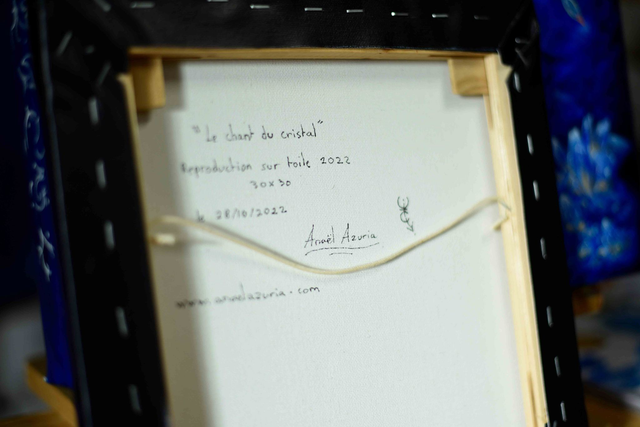 "Le chant du cristal"
Reproduction sur toile 2022
30x30
le 28/10/2022
Anaël Azuria
www.anaelazuria.com